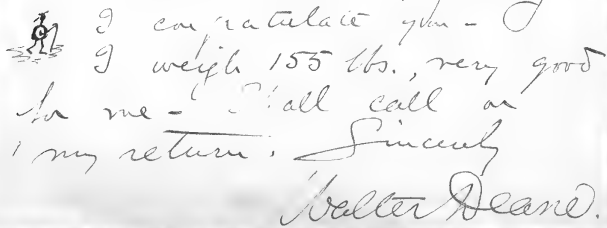 I congratulate you - I
I weigh 155 lbs., very good
for me - Shall call on
my return. Sincerely
Walter Deane.